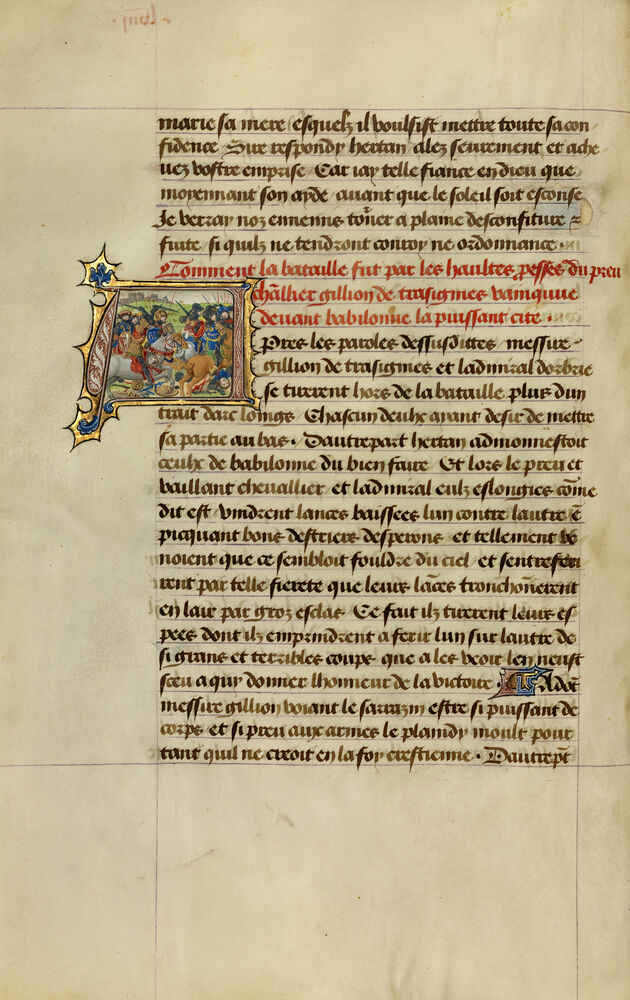 marie sa mere esquelz il voulsist mettre toute sa con
fidence Sire respondy hertan alez seurement et ache
uez vostre emprise Car iay telle fiance en dieu que
moyennant son ayde auant que le soleil soit esconse
Je verray noz ennemis tõner a plaine desconfiture z
fuite si quilz ne tendront conroy ne ordonnance .
Comment la bataille fut par les haultes pesses du preu
chãllier gillion de trasignies vainquue
deuant babilonne la puissant cite .
Apres les paroles dessusdittes messire
gillion de trasignies et ladmiral dorbrie
se tirerent hors de la bataille plus dun
trait darc loings Chascun deulx ayant desir de mettre
sa partie au bas . Dautrepart hertan admonnestoit
ceulx de babilonne du bien faire Et lors le preu et
vaillant cheuallier et ladmiral eulz eslongies cõme
dit est vindrent lances baissees lun contre lautre ẽ
picquant bons destriers desperons et tellement ve
noient que ce sembloit fouldre du ciel et sentreferi
rent par telle fierete que leurs lãces tronchõnerent
en lair par groz esclas Ce fait ilz tirerent leurs es
pees dont ilz emprindrent a ferir lun sur lautre de
si grans et terribles coups que a les veoir len neust
sceu a quy donner lhonneur de la victoire . Adõt
messire gillion voiant le sarrazin estre si puissant de
corps et si preu aux armes le plaindy moult pour
tant quil ne creoit en la foy crestienne . Dautrept